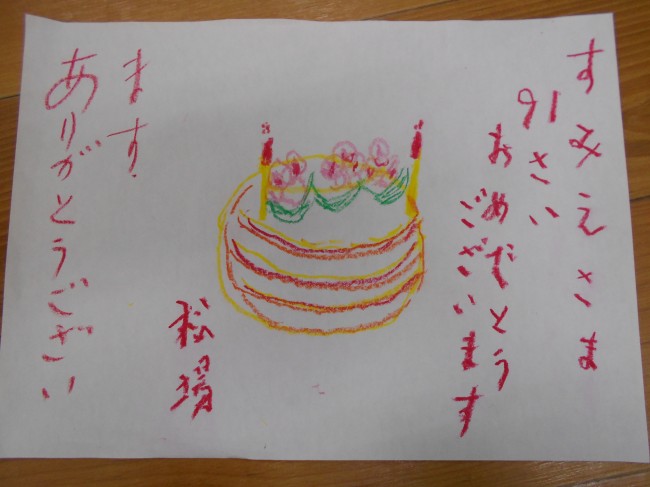 すみえさま
91さい
おめでとう
ございます
松場
ます
ありがとうござい